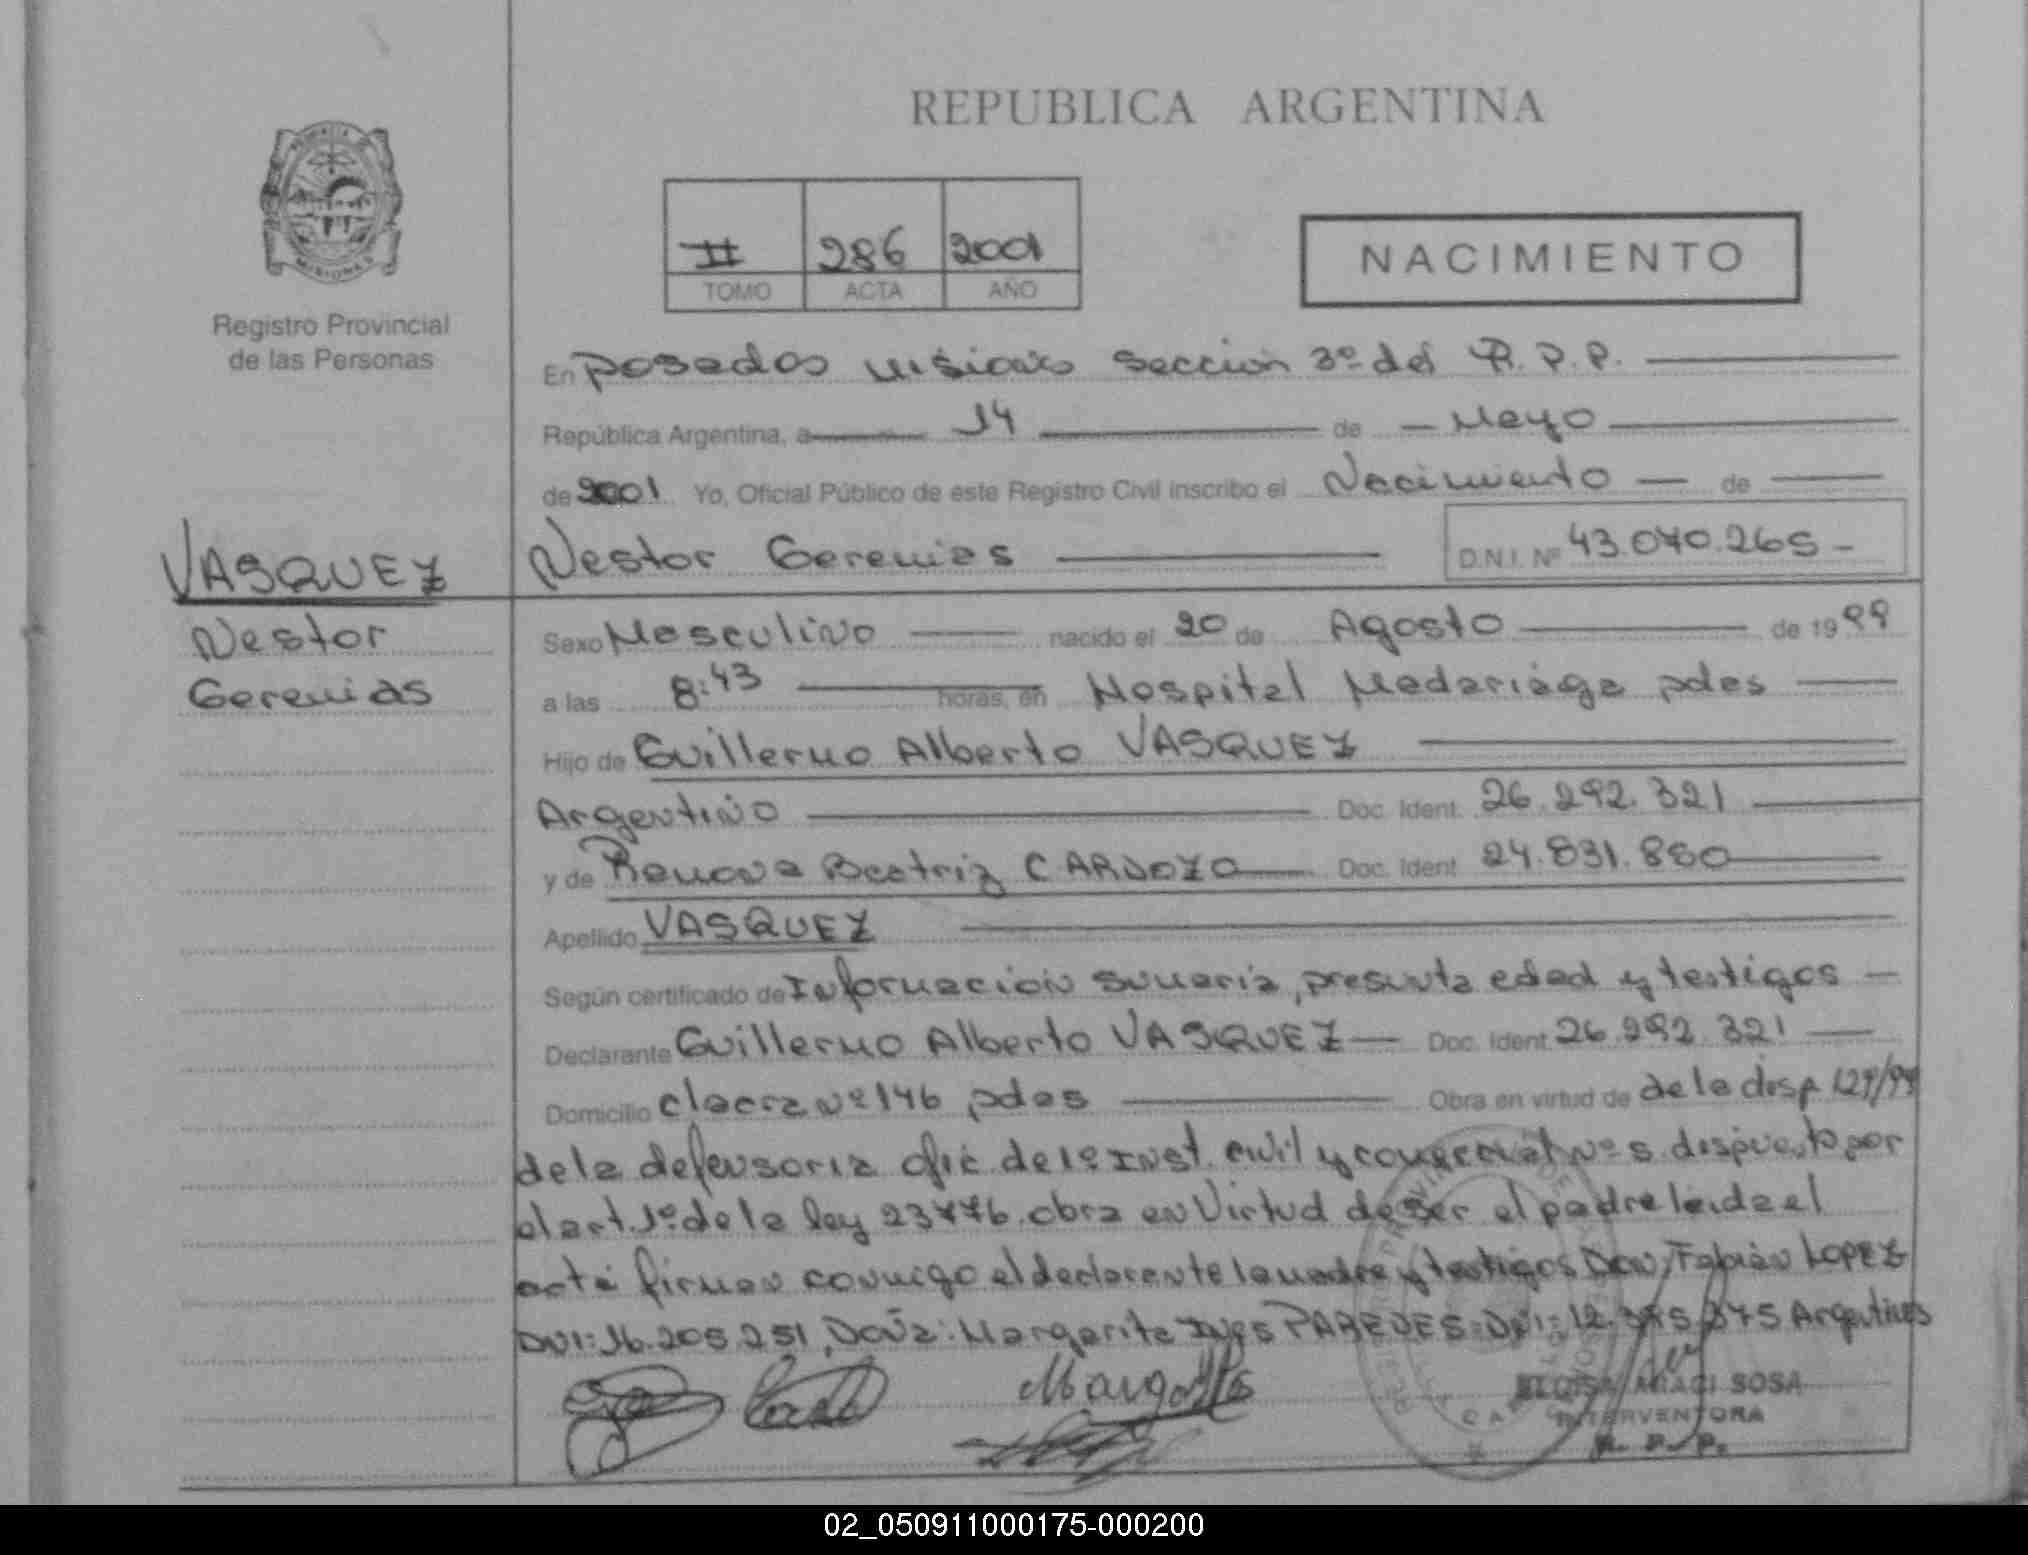 REPUBLICA ARGENTINA
II 286 2001
TOMO ACTA AÑO
NACIMIENTO
MISIONES
Registro Provincial
de las Personas
En Posadas Misiones Sección 3º del R.P.P.
República Argentina, a 14 de Mayo
de 2001 Yo, Oficial Público de este Registro Civil inscribo el Nacimiento de
VASQUEZ Nestor Geremias D.N.I. Nº 43.070.265
Nestor
Geremias
Sexo Masculino nacido el 20 de Agosto de 1999
a las 8:43 horas, en Hospital Madariaga pdas
Hijo de Guillermo Alberto VASQUEZ
Argentino Doc. Ident. 26.292.321
y de Ramona Beatriz CARDOZO Doc. Ident. 24.831.880
Apellido VASQUEZ
Según certificado de Informacion sumaria, presunta edad y testigos
Declarante Guillermo Alberto VASQUEZ Doc. Ident. 26.292.321
Domicilio chacra Nº 146 pdas Obra en virtud de de la disp. 127/99
de la defensoria ofic. de 1º Inst. civil y comercial Nº 5 dispuesto por
el art. 1º de la ley 23776. obra en Virtud de ser el padre leida el
acta firman conmigo el declarante la madre y testigos Don: Fabián LOPEZ
DNI: 16.205.251, Doña: Margarita Ines PAREDES DNI: 12. Argentinos
ELOISA ARACI SOSA
INTERVENTORA
R. P. P.
02_050911000175-000200